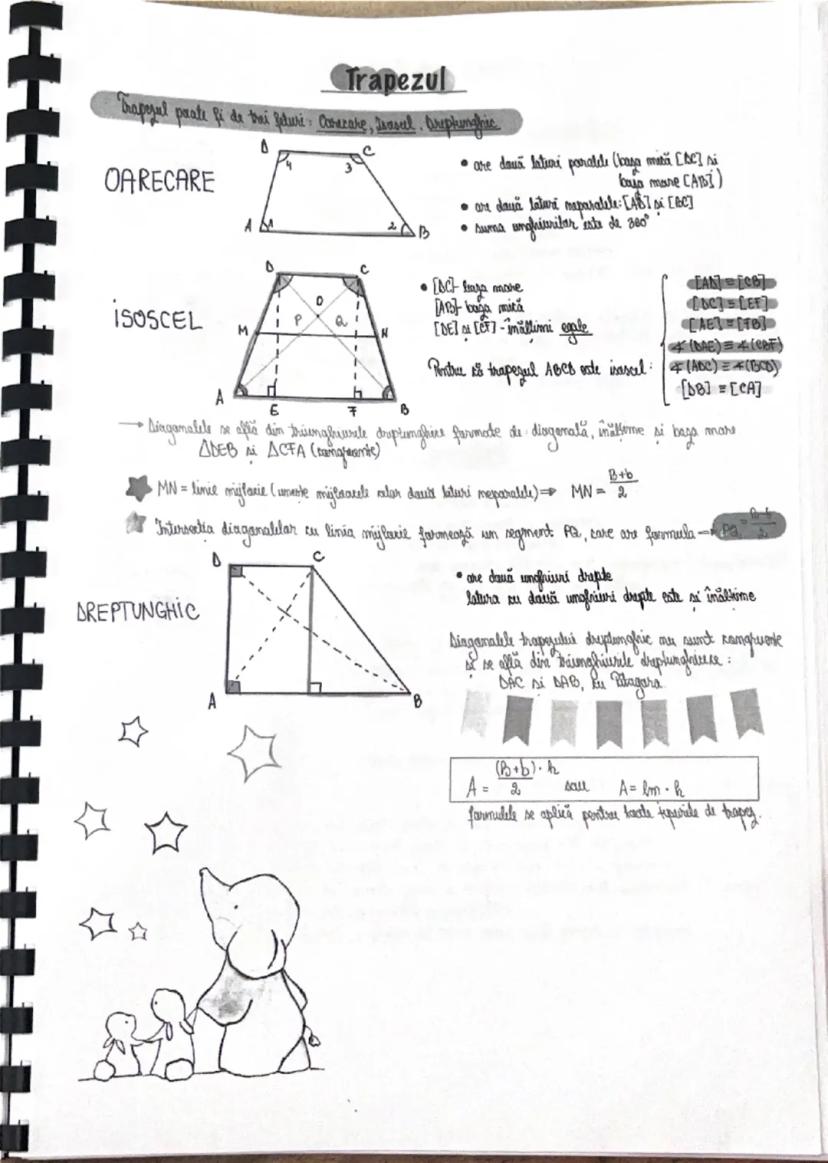 Trapezul
Trapezul poate fi de trei feluri: Oarecare, Isoscel, Dreptunghic
OARECARE
D C
4 3
A 1 2 B
• are două laturi paralele (baza mică [DC] și
baza mare [AB])
• are două laturi neparalele: [AD] și [BC]
• suma unghiurilor este de 360°
ISOSCEL
D C
O
P Q
M N
A B
E F
• [DC]- baza mare
[AB]- baza mică
[DE] și [CF] - înălțimi egale
Pentru că trapezul ABCD este isoscel:
[AD] ≡ [CB]
[DC] ≡ [EF]
[AE] ≡ [FB]
∢(DAE) ≡ ∢(CBF)
∢(ADC) ≡ ∢(BCD)
[DB] ≡ [CA]
→ Diagonalele se află din triunghiurile dreptunghice formate de diagonală, înălțime și baza mare
ΔDEB și ΔCFA (congruente)
MN = linie mijlocie (unește mijloacele celor două laturi neparalele) ⇒ MN = B+b/2
Intersecția diagonalelor cu linia mijlocie formează un segment PQ, care are formula → PQ = B-b/2
DREPTUNGHIC
D C
A B
• are două unghiuri drepte
latura cu două unghiuri drepte este și înălțime
Diagonalele trapezului dreptunghic nu sunt congruente
și se află din triunghiurile dreptunghice:
DAC și DAB, cu Pitagora.
A = (B+b)·h/2 sau A = lm·h
formulele se aplică pentru toate tipurile de trapez.